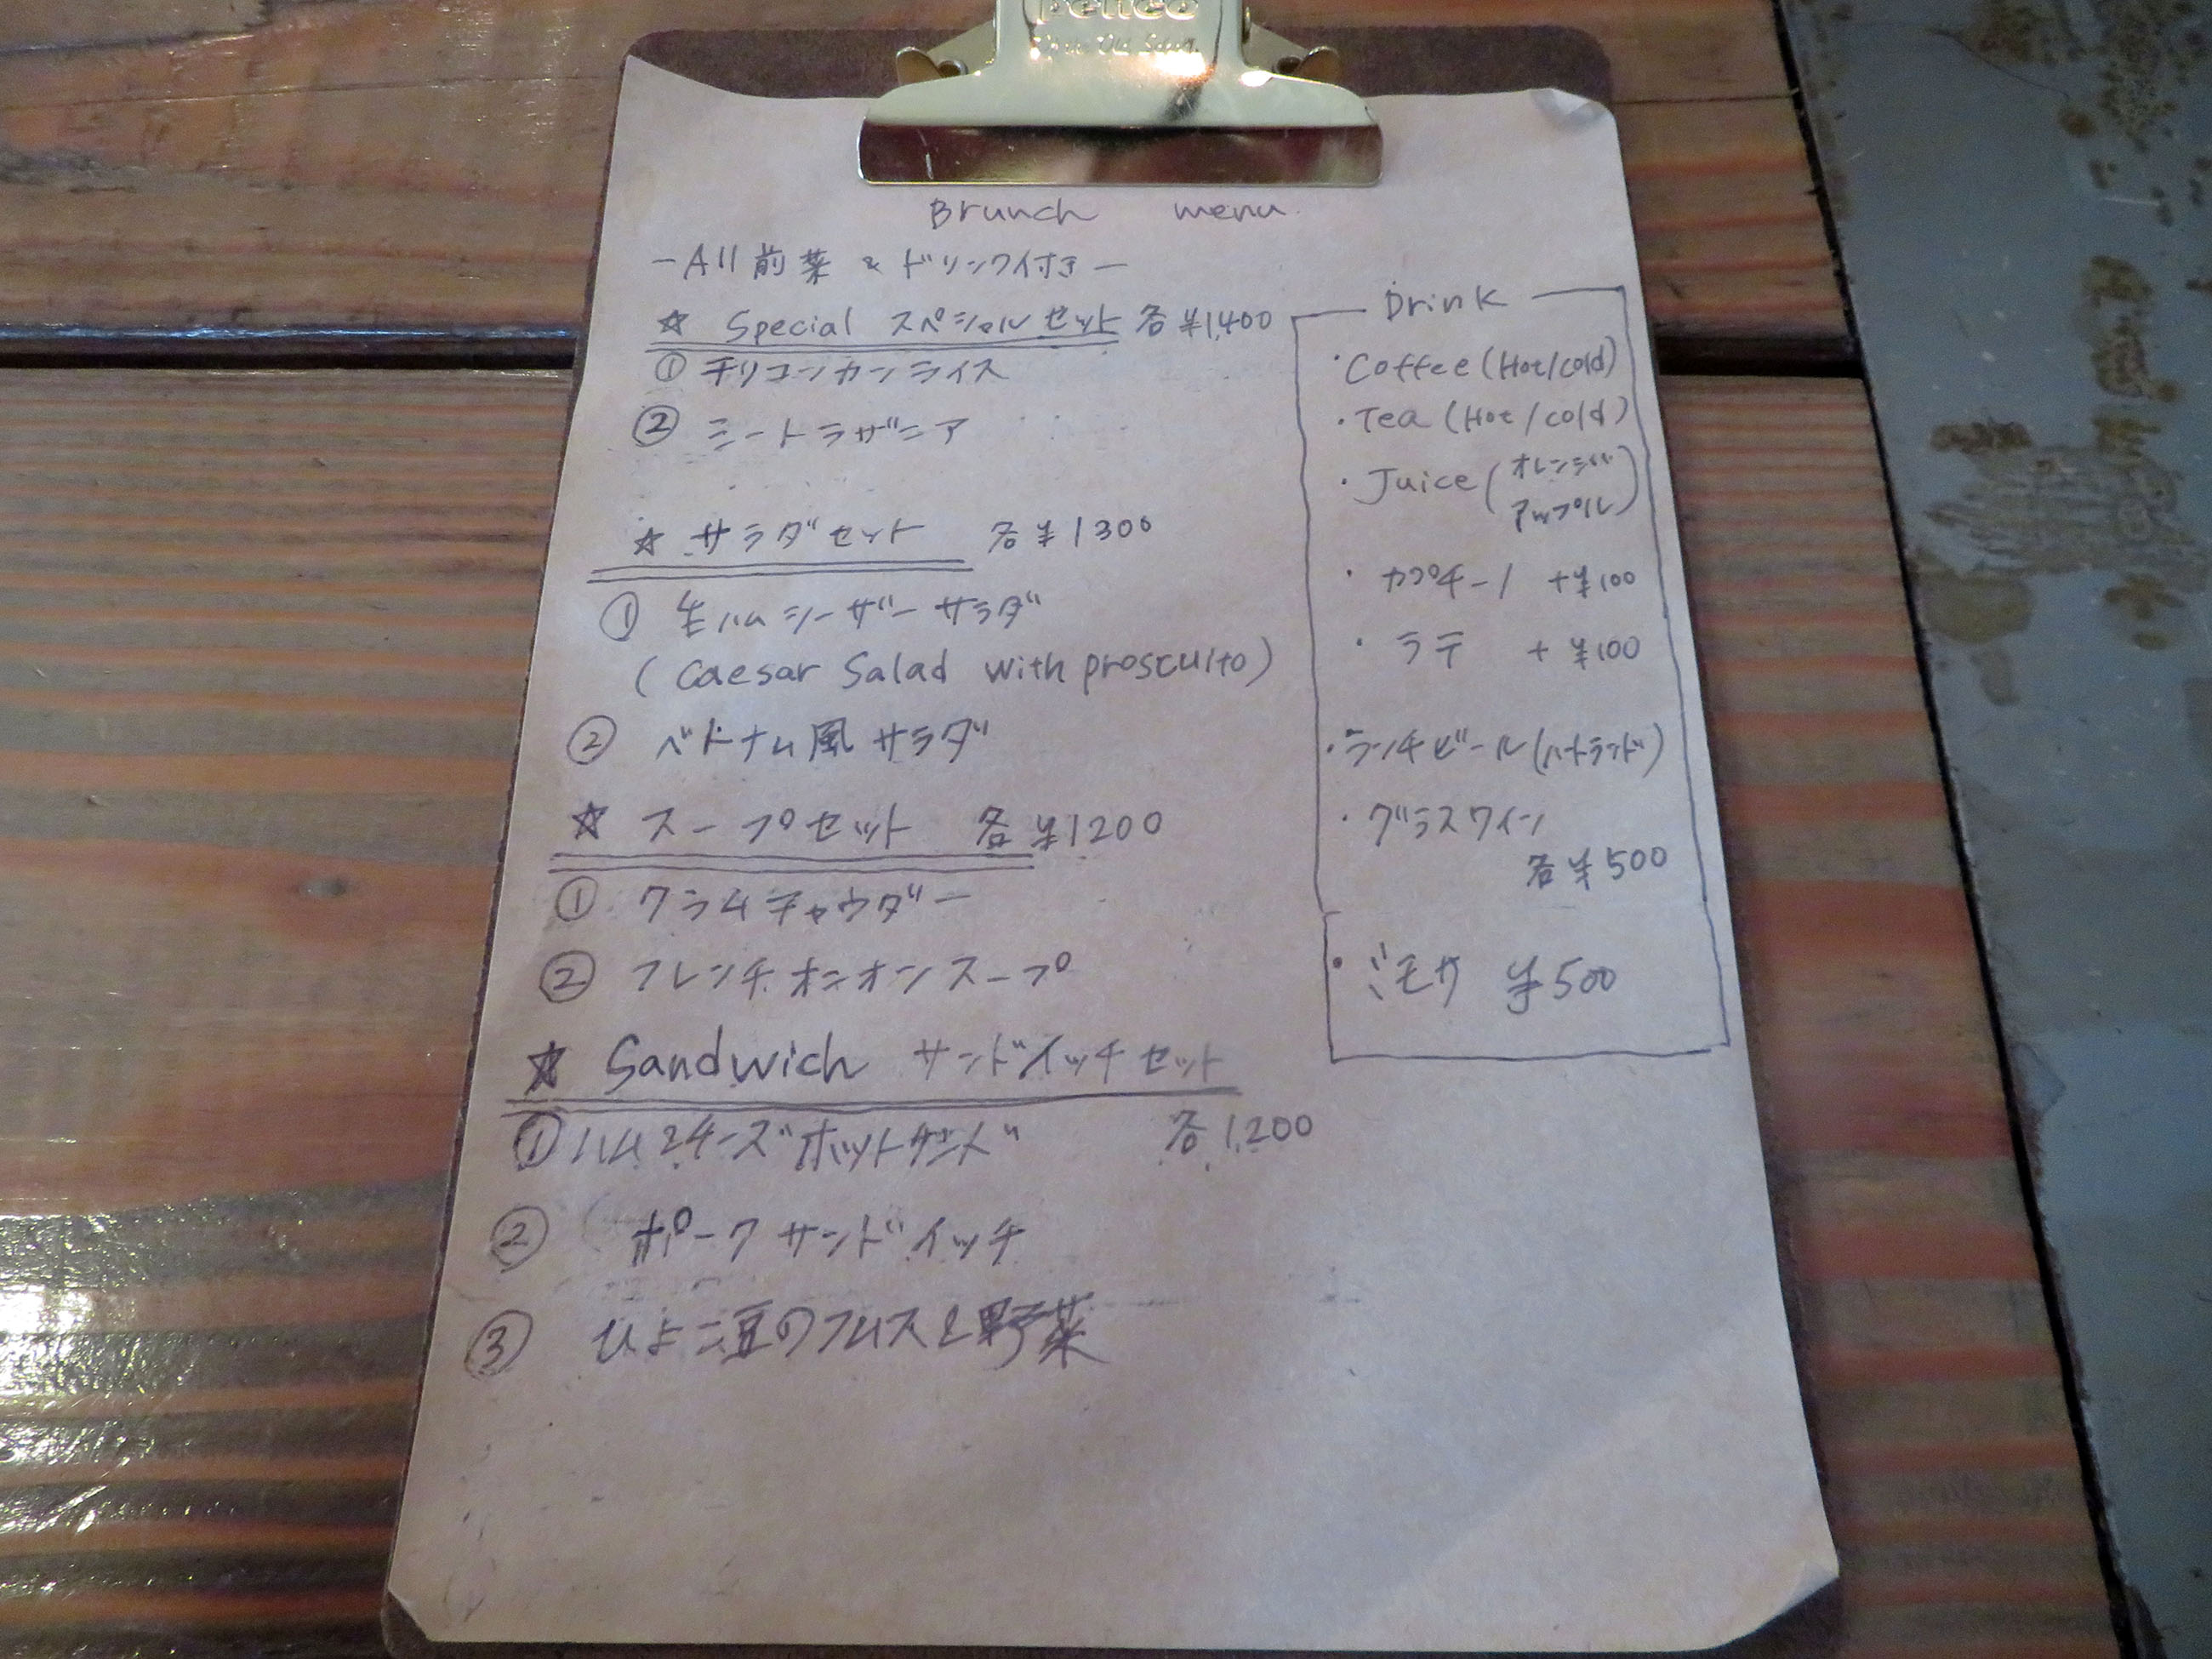 Penco
Brunch menu.
-All 前菜 & ドリンク付き-
☆ Special スペシャルセット 各¥1,400
① チリコンカンライス
② ミートラザニア
☆ サラダセット 各¥1300
① 生ハムシーザーサラダ
(Caesar Salad with proscuito)
② ベトナム風サラダ
☆ スープセット 各¥1200
① クラムチャウダー
② フレンチオニオンスープ
☆ Sandwich サンドイッチセット
① ハムとチーズホットサンド 各1,200
② ポークサンドイッチ
③ ひよこ豆のフムスと野菜
Drink
・Coffee (Hot/cold)
・Tea (Hot/cold)
・Juice (オレンジ
アップル)
・カプチーノ +¥100
・ラテ +¥100
・ランチビール(ハートランド)
・グラスワイン
各¥500
・ミモザ ¥500